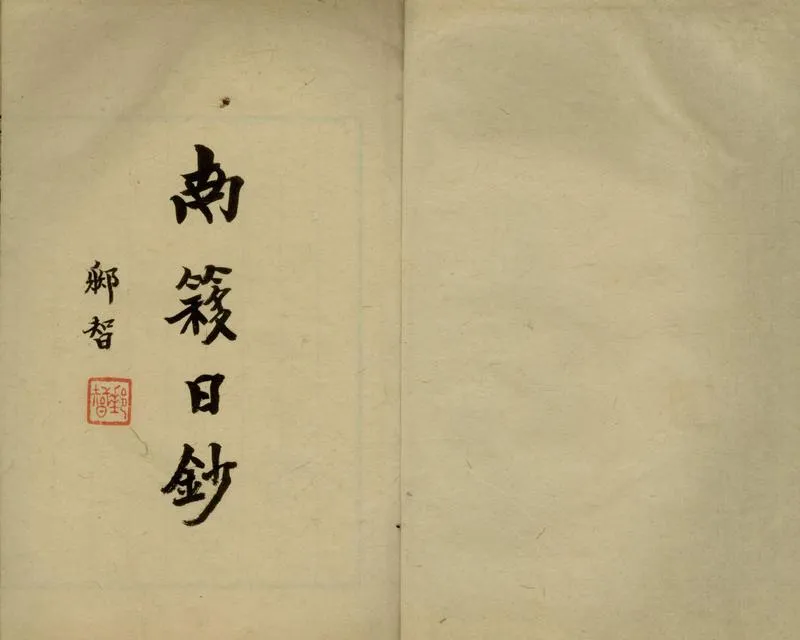 南簃日鈔
智